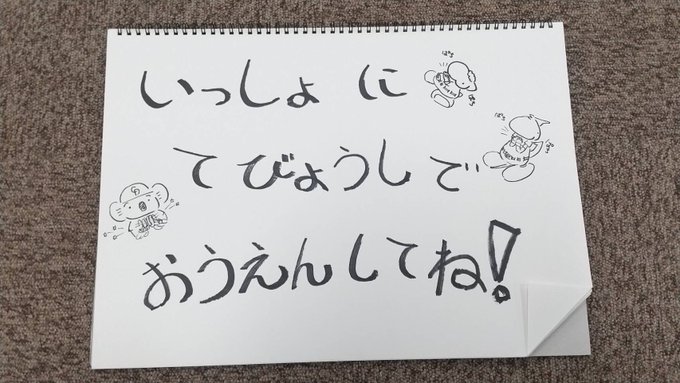 いっしょに
てびょうしで
おうえんしてね!